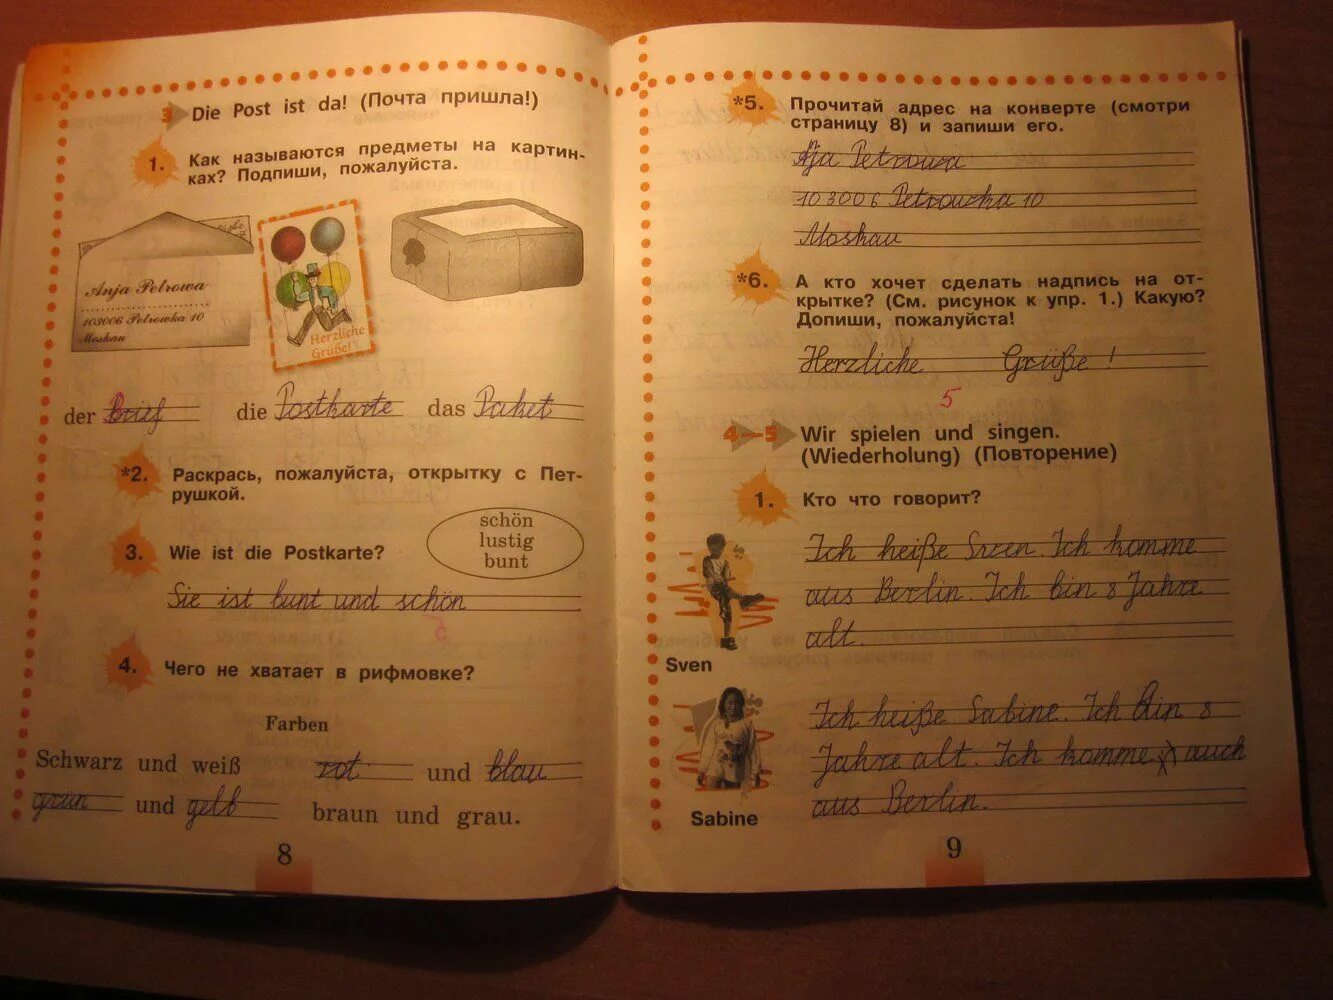 3 Die Post ist da! (Почта пришла!)
1. Как называются предметы на картин-
ках? Подпиши, пожалуйста.
Anja Petrowa
103006 Petrowka 10
Moskau
Herzliche
Grüße!
der Brief die Postkarte das Paket
*2. Раскрась, пожалуйста, открытку с Пет-
рушкой.
schön
lustig
bunt
3. Wie ist die Postkarte?
Sie ist bunt und schön
5
4. Чего не хватает в рифмовке?
Farben
Schwarz und weiß rot und blau
grün und gelb braun und grau.
8
*5. Прочитай адрес на конверте (смотри
страницу 8) и запиши его.
Aja Petrowa
103006 Petrowka 10
Moskau
*6. А кто хочет сделать надпись на от-
крытке? (См. рисунок к упр. 1.) Какую?
Допиши, пожалуйста!
Herzliche Grüße!
5
4—5 Wir spielen und singen.
(Wiederholung) (Повторение)
1. Кто что говорит?
Ich heiße Sven. Ich komme
aus Berlin. Ich bin 8 Jahre
alt.
Sven
Ich heiße Sabine. Ich bin 8
Jahre alt. Ich komme auch
aus Berlin.
Sabine
9